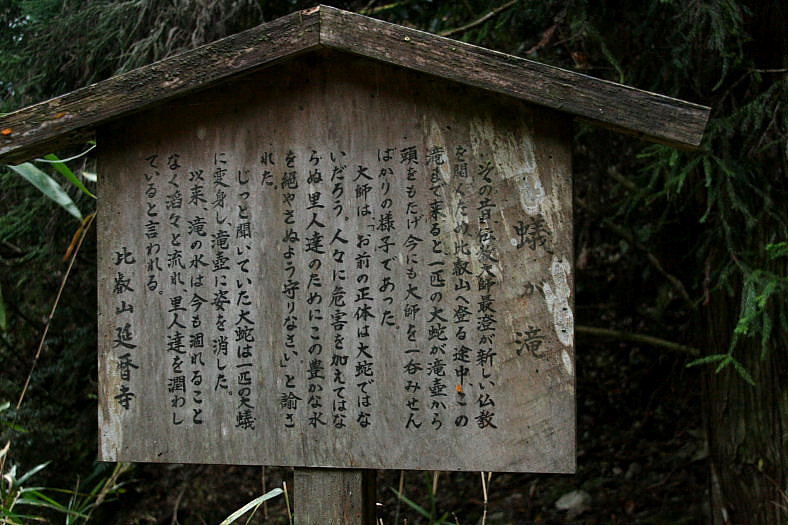 蟻が滝
その昔伝教大師最澄が新しい仏教
を開くため比叡山へ登る途中、この
滝まで来ると一匹の大蛇が滝壺から
頭をもたげ今にも大師を一呑みせん
ばかりの様子であった。
大師は、「お前の正体は大蛇ではな
いだろう。人々に危害を加えてはな
らぬ里人達のためにこの豊かな水
を絶やさぬよう守りなさい」と諭さ
れた。
じっと聞いていた大蛇は一匹の大蟻
に変身し、滝壺に姿を消した。
以来、滝の水は今も涸れること
なく滔々と流れ、里人達を潤わし
ていると言われる。
比叡山延暦寺